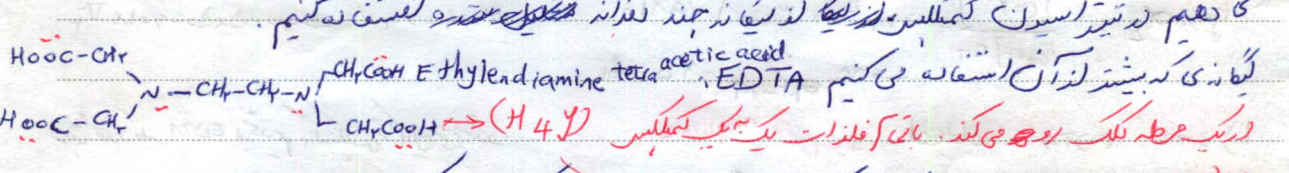 می دهیم در تیتراسیون کمپلکس از لیگاند چند دندانه استفاده کنیم.
لیگاندی که بیشتر از آن استفاده می کنیم EDTA، Ethylendiamine tetra acetic acid
HOOC-CH2
CH2COOH
N-CH2-CH2-N
HOOC-CH2
CH2COOH → (H4Y)
در یک مرحله کلک رو می کند. با تمام فلزات یک به یک کمپلکس